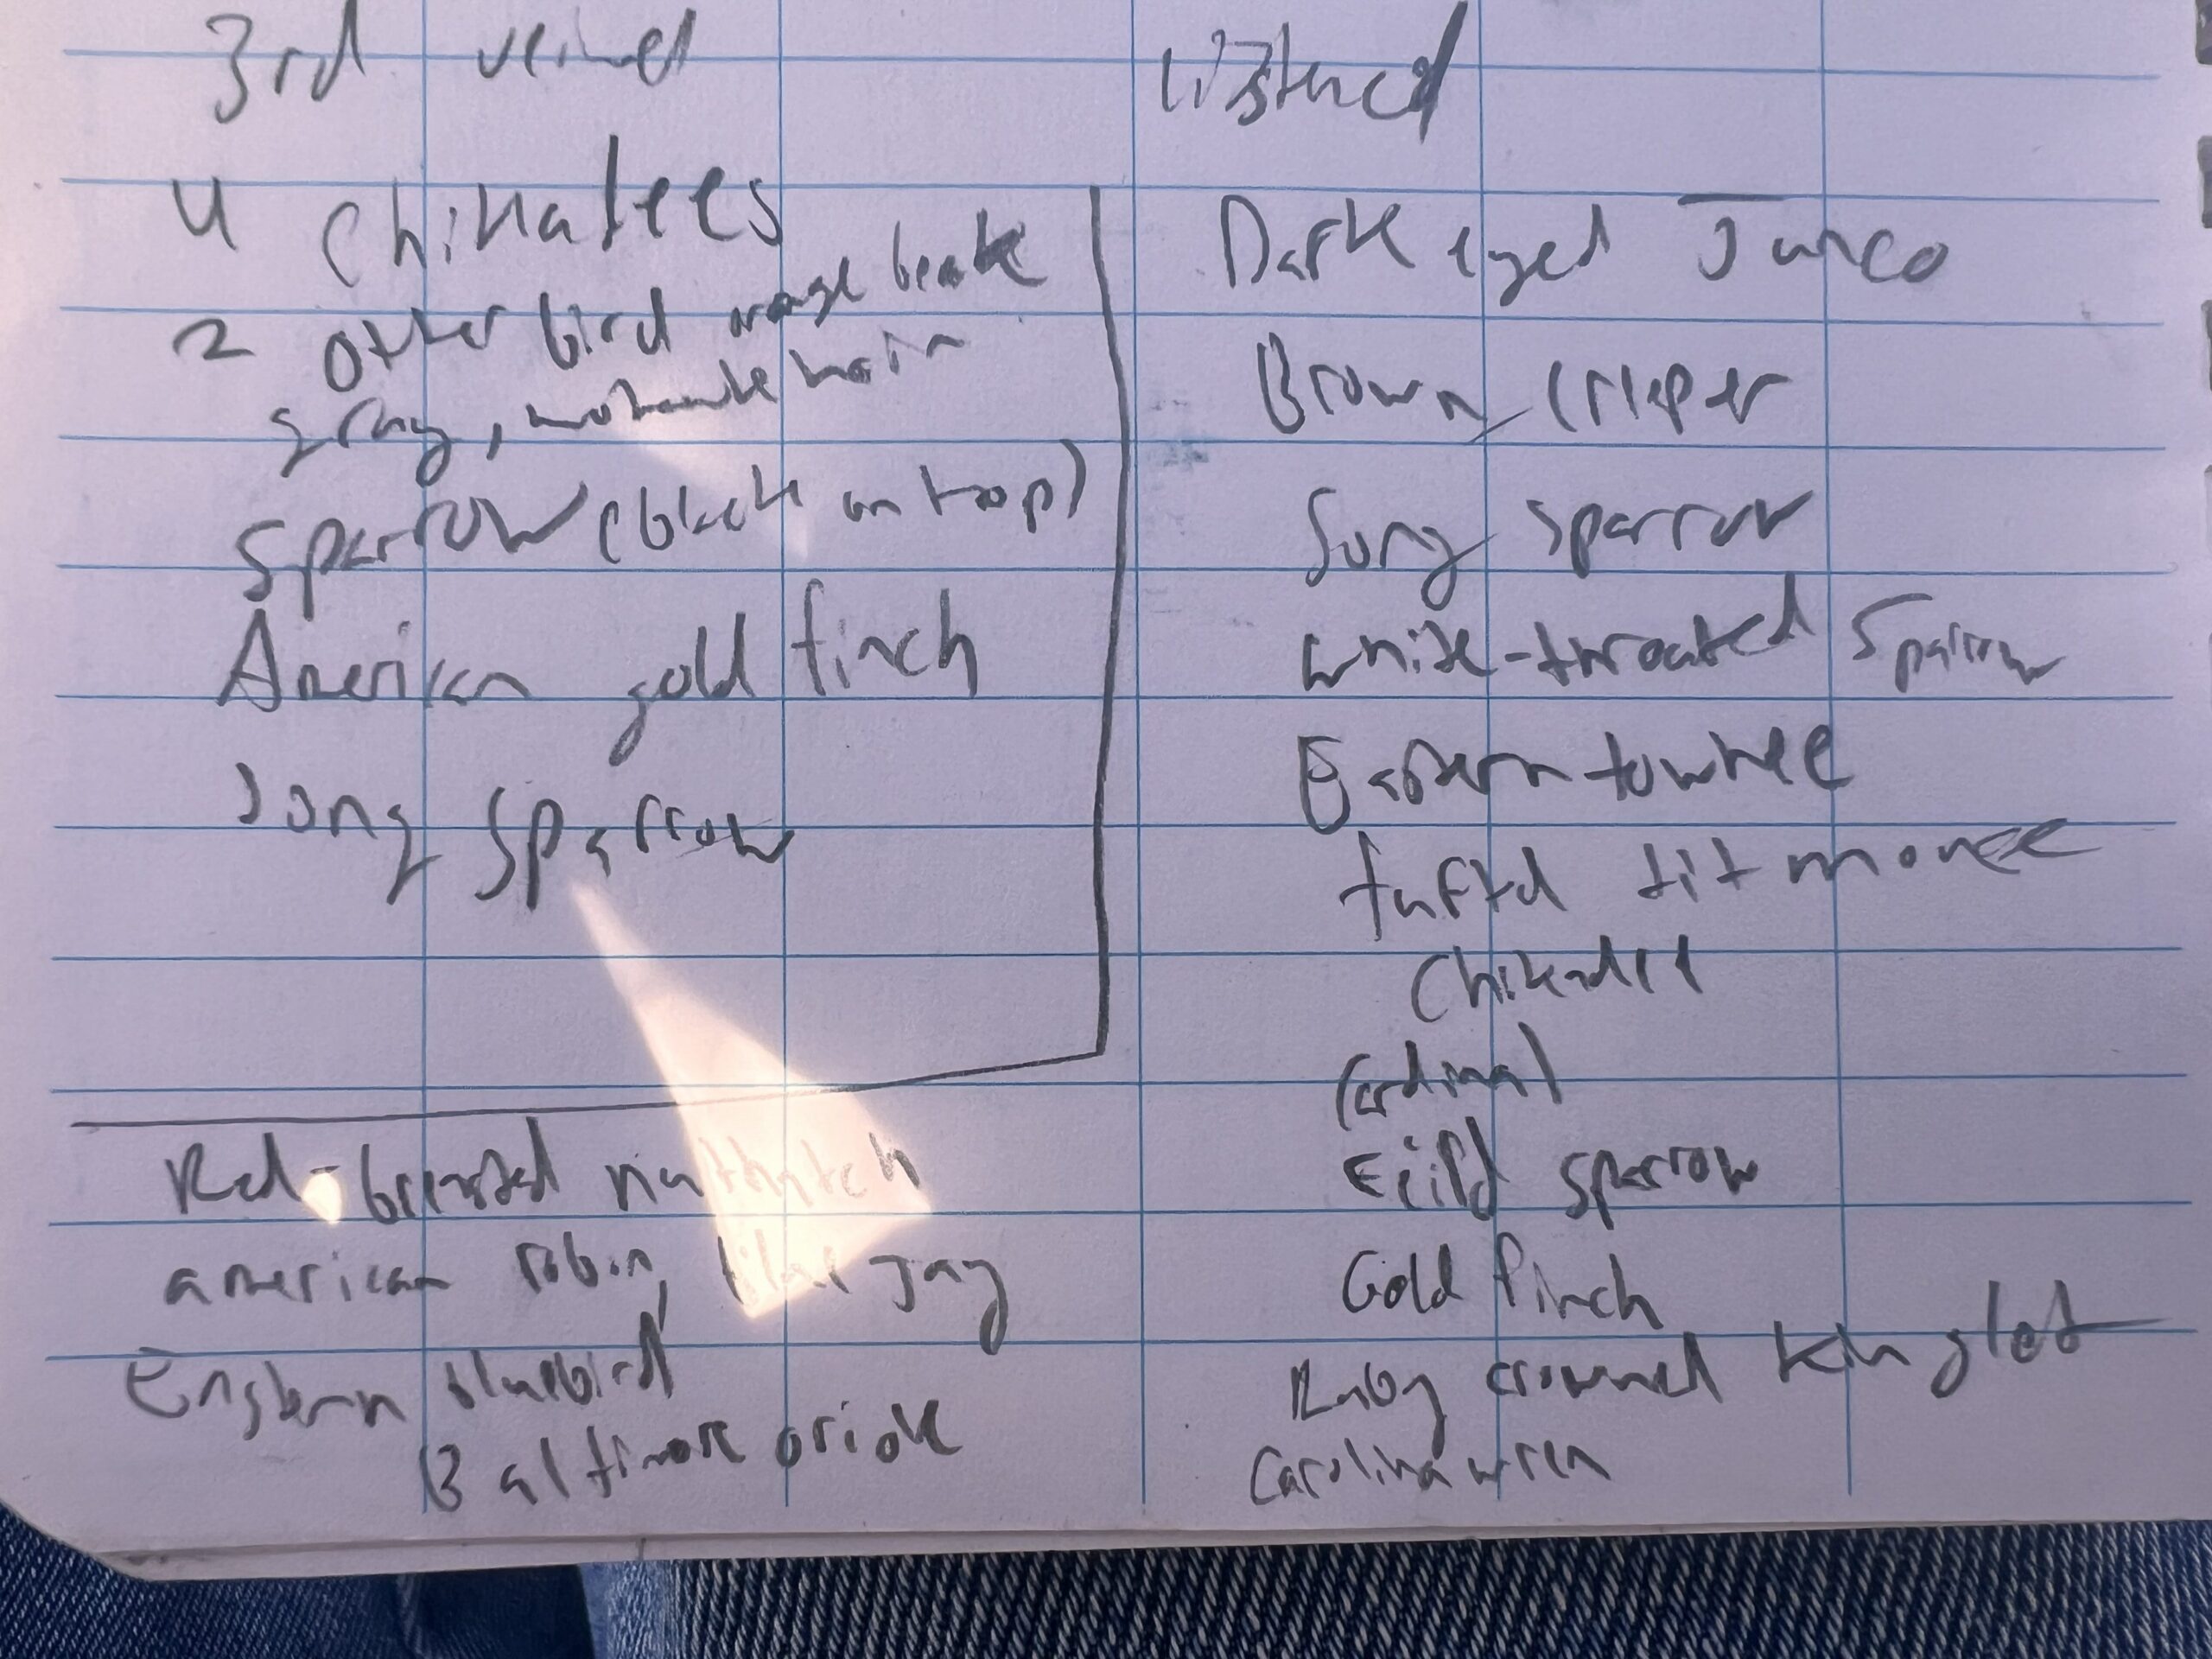 3rd veiwed
4 Chikadees
2 Other bird orange beak
gray, mohawk hair
Sparrow (black on top)
American gold finch
Song Sparrow
Listened
Dark eyed Junco
Brown, creeper
Song sparrow
white-throated sparrow
Eastern towhee
tufted titmouse
Chikadee
Cardinal
Feild sparrow
Gold finch
Ruby crowned kinglet
Carolina wren
Red-breasted nuthatch
american robin, blue Jay
Eastern bluebird
Baltimore oriole